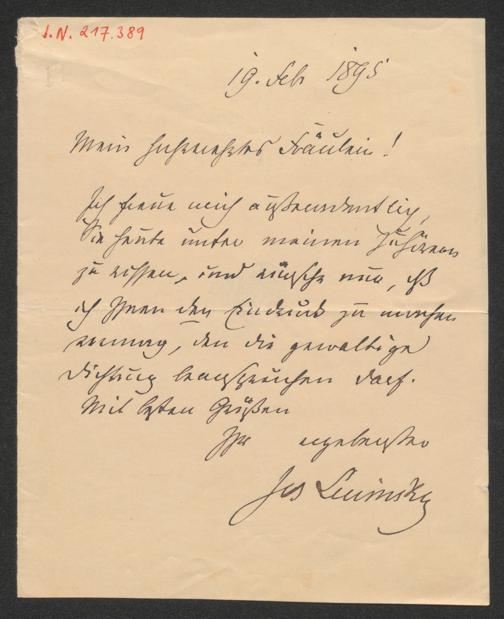 I.N. 217.389
19. Feb 1895
Mein hochverehrtes Fräulein!
Ich freue mich außerordentlich,
Sie heute unter meinen Zuhörern
zu wissen, und wünsche nur, daß
ich Ihnen den Eindruck zu machen
vermag, den die gewaltige
Dichtung beanspruchen darf.
Mit besten Grüßen
Ihr ergebenster
Jos Lewinsky